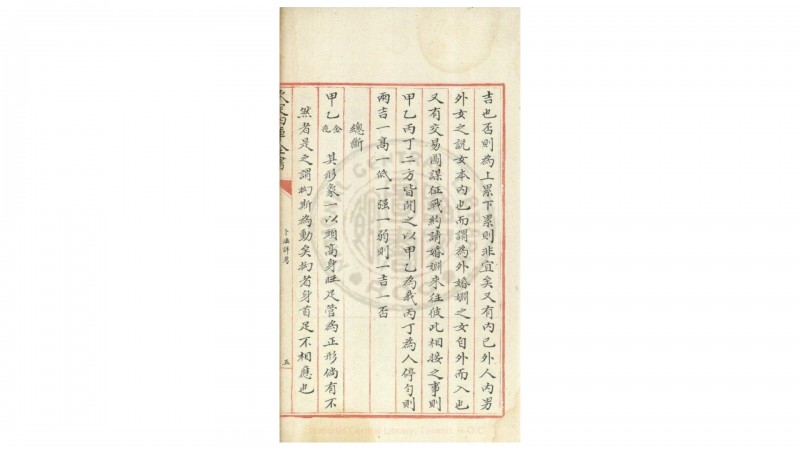 吉也否則為上累下累則非宜矣又有内己外人内男
外女之説女本内也而謂為外婚姻之女自外而入也
又有交易圖謀征戰約請婚姻来往彼此相接之事則
甲乙丙丁二方皆開之以甲乙為我丙丁為人停匀則
兩吉一髙一低一强一弱則一吉一否
總斷
甲乙 其形象一以頭髙身旺足管為正形倘有不
然者是之謂拗斯為動矣拗者身首足不相應也
欽定四庫全書
卜法詳考
五